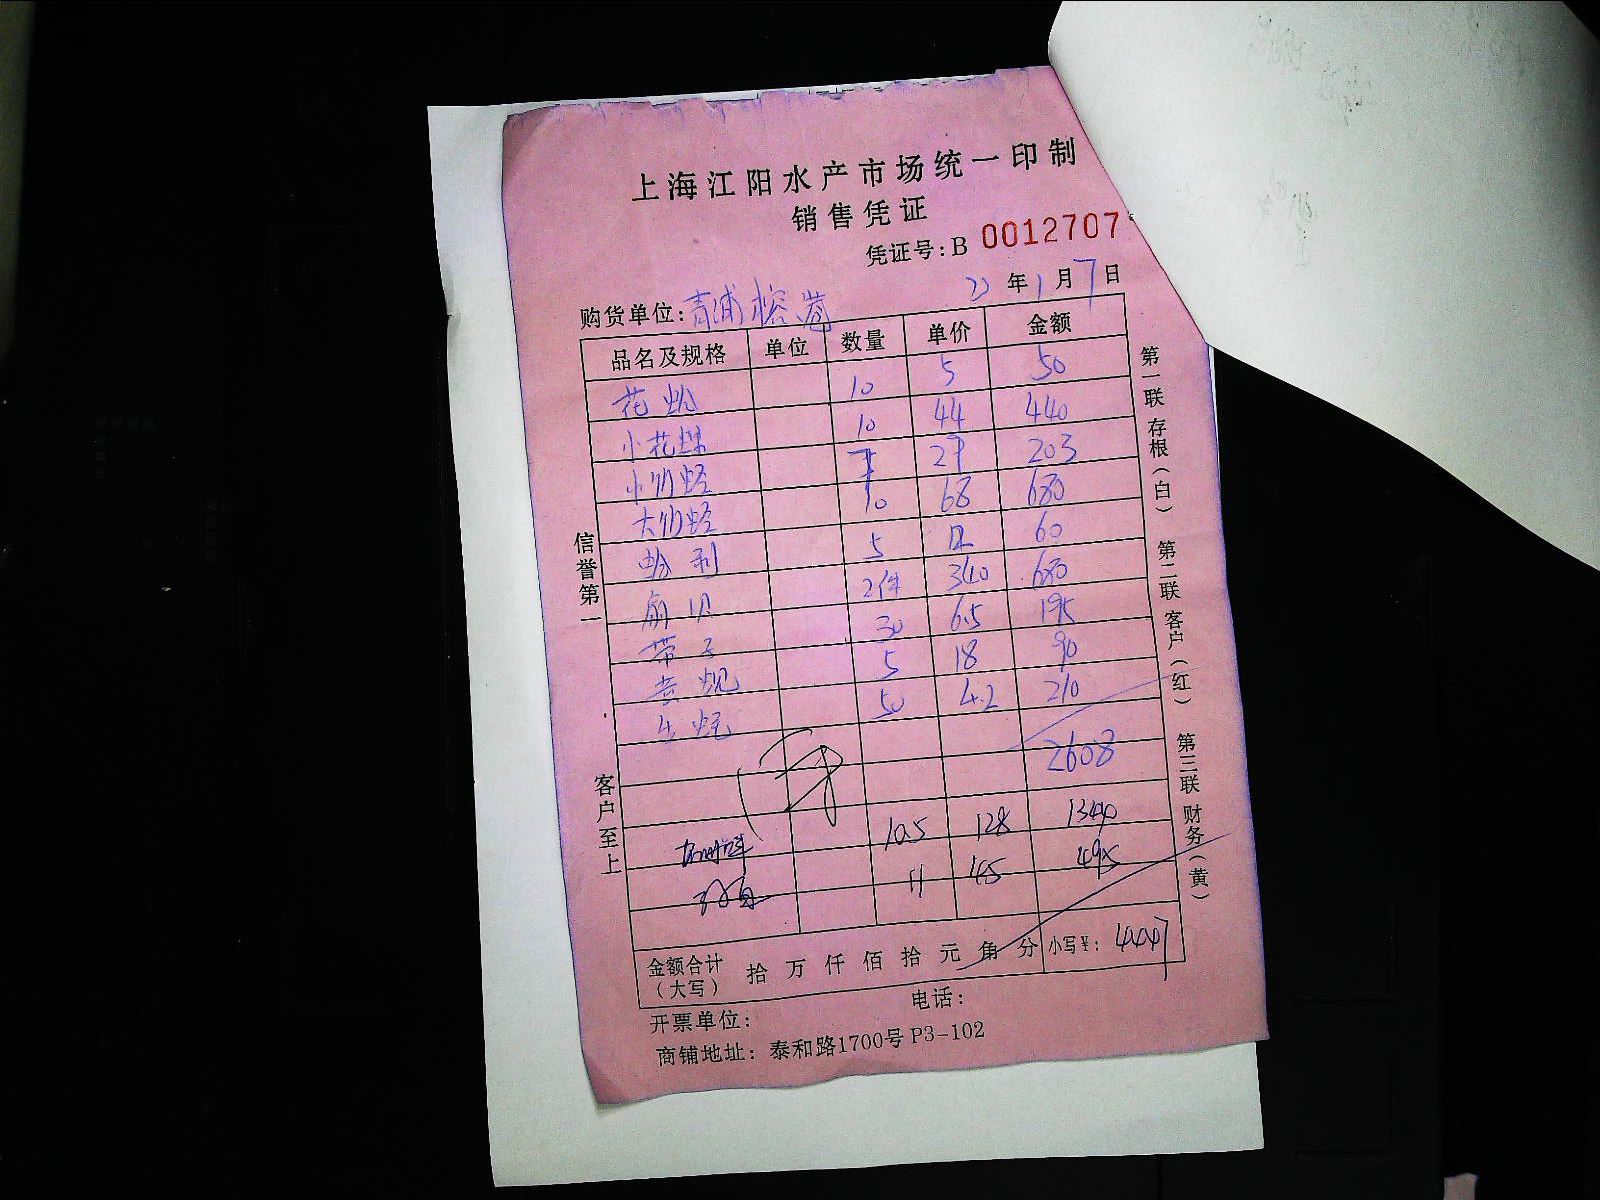 上海江阳水产市场统一印制
销售凭证
凭证号:B 0012707
23 年 1 月 7 日
购货单位: 青浦榕港
品名及规格 单位 数量 单价 金额
花蚬 10 5 50
小花螺 10 44 440
小竹蛏 7 29 203
大竹蛏 10 68 680
蛤利 5 12 60
扇贝 2件 340 680
带子 30 6.5 195
黄蚬 5 18 90
生蚝 50 4.2 210
2608
10.5 128 1344
11 45 495
金额合计(大写) 拾 万 仟 佰 拾 元 角 分 小写¥: 4447
开票单位: 电话:
商铺地址: 泰和路1700号 P3-102
信誉第一
客户至上
第一联 存根(白) 第二联 客户(红) 第三联 财务(黄)